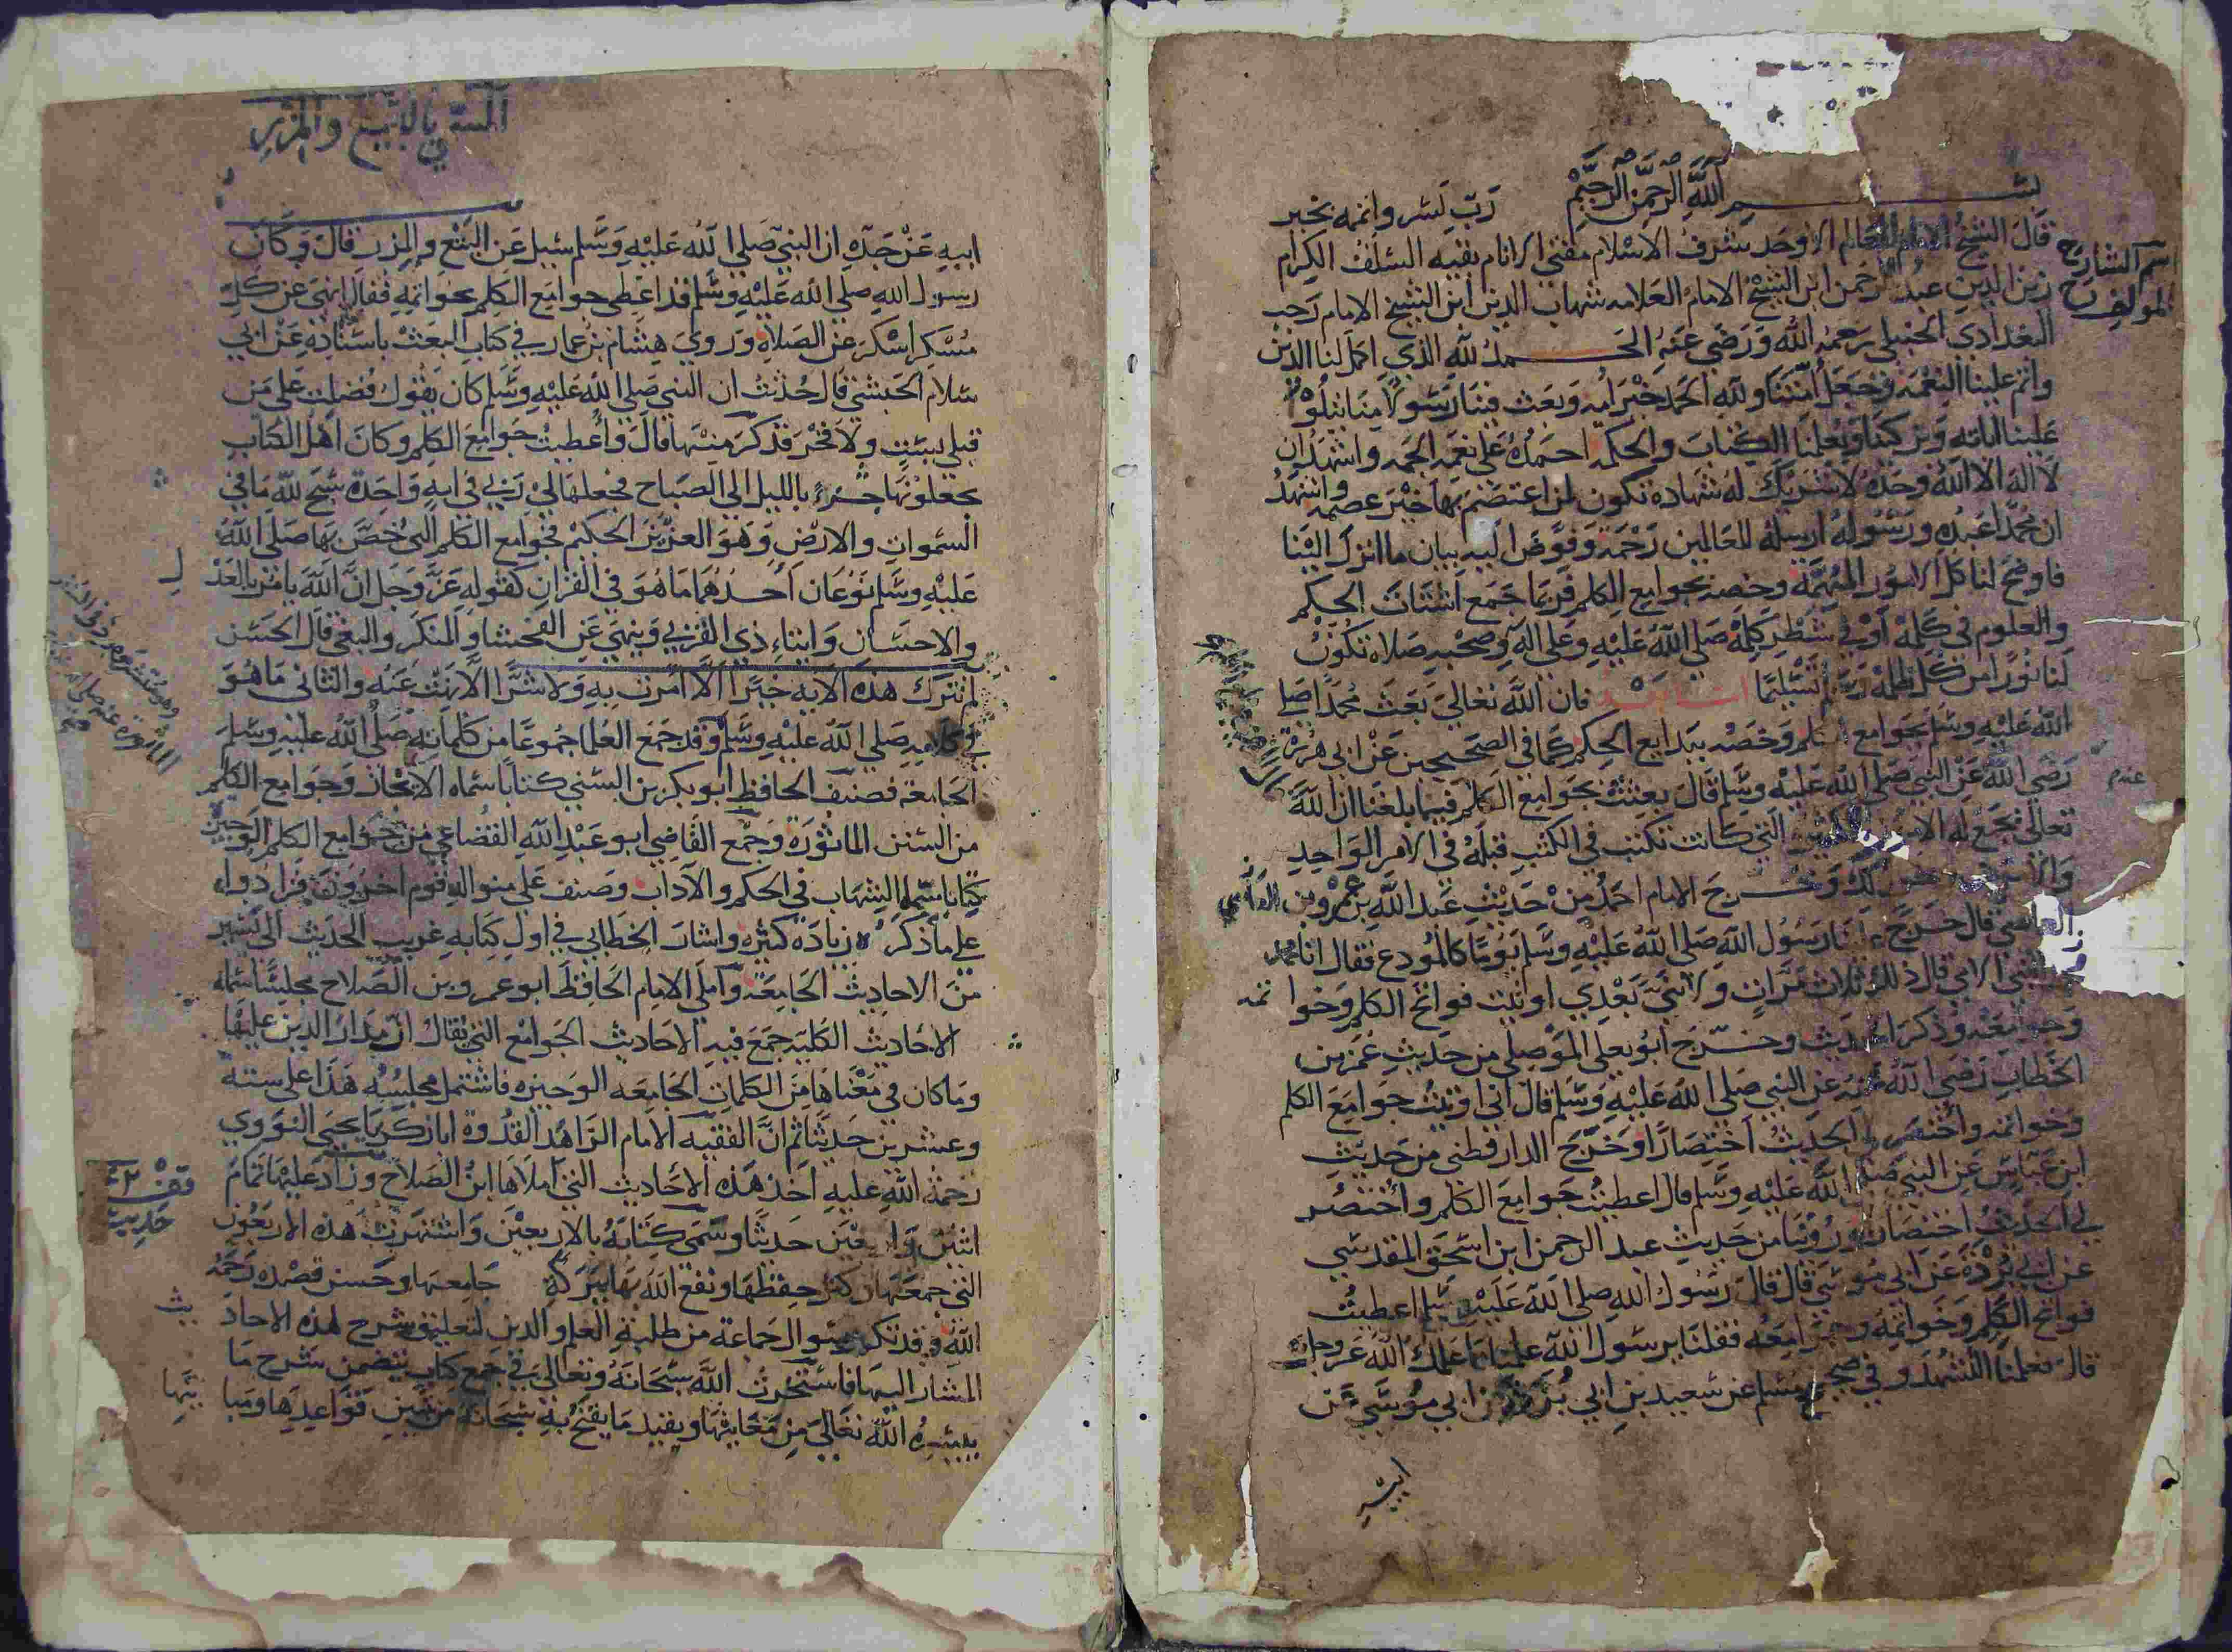 بسم الله الرحمن الرحيم رب يسر واتمه بخير
قال الشيخ الامام العالم الاوحد شرف الاسلام مفتي الانام بقيه السلف الكرام
زين الدين عبد الرحمن ابن الشيخ الامام العلامه شهاب الدين ابن الشيخ الامام رجب
البغدادي الحنبلي رحمه الله ورضي عنه الحمد لله الذي اكمل لنا الدين
واتم علينا النعمه وجعل امتنا ولله الحمد خير امه وبعث فينا رسولا منا يتلو
علينا اياته ويزكينا ويعلمنا الكتاب والحكمه احمده على نعمه الجمه واشهد ان
لا اله الا الله وحده لا شريك له شهاده تكون لمن اعتصم بها خير عصمه واشهد
ان محمدا عبده ورسوله ارسله للعالمين رحمه وفوض اليه بيان ما انزل الينا
فاوضح لنا كل الامور المهمة وخصه بجوامع الكلم فربما جمع اشتات الحكم
والعلوم في كلمة او في شطر كلمة صلى الله عليه وعلى اله وصحبه صلاة تكون
لنا نورا من كل ظلمة وسلم تسليما اما بعد فان الله تعالى بعث محمدا صلى
الله عليه وسلم بجوامع الكلم وخصه ببدايع الحكم كما في الصحيحين عن ابي هريرة
رضي الله عن النبي صلى الله عليه وسلم قال بعثت بجوامع الكلم فيما بلغنا ان الله
تعالى يجمع له الامور التي كانت تكتب في الكتب قبله في الامر الواحد
ذلك وخرج الامام احمد من حديث عبد الله بن عمرو بن العاصي
العاصي قال خرج علينا رسول الله صلى الله عليه وسلم يوما كالمودع فقال انا محمد
النبي الامي قال ذلك ثلاث مرات ولا نبي بعدي اوتيت فواتح الكلم وخوا تمه
وجوامعه وذكر الحديث وخرج ابو يعلى الموصلي من حديث عمر بن
الخطاب رضي الله عنه عن النبي صلى الله عليه وسلم قال اني اوتيت جوامع الكلم
وخواتمه واختصر لي الحديث اختصارا وخرج الدارقطني من حديث
ابن عباس عن النبي صلى الله عليه وسلم قال اعطيت جوامع الكلم واختصر
لي الحديث اختصارا وروينا من حديث عبد الرحمن ابن اسحق المقدسي
عن ابي بردة عن ابي موسى قال قال رسول الله صلى الله عليه وسلم اعطيت
فواتح الكلم وخواتمه وجوامعه فقلنا يرسول الله علمنا مما علمك الله عز وجل
قال فعلمنا التشهد وفي صحيح مسلم عن سعيد بن ابي بردة بن ابي موسى عن
ابيه
اسم الشارح
المولف رح
عنه م
ابيه عن جده ان النبي صلى الله عليه وسلم سيل عن البتع والمزر قال وكان
رسول الله صلى الله عليه وسلم قد اعطي جوامع الكلم بخواتمه فقال انهى عن كل
مسكر اسكر عن الصلاة وروى هشام بن عمار في كتاب البعث باسناده عن ابي
سلام الحبشي قال حدثت ان النبي صلى الله عليه وسلم كان يقول فضلت على من
قبلي بست ولا فخر فذكر منها قال واعطيت جوامع الكلم وكان اهل الكتاب
يجعلونها جزءا بالليل الى الصباح فجعلها لي ربي في اية واحدة سبح لله ما في
السموات والارض وهو العزيز الحكيم فجوامع الكلم التي خص بها صلى الله
عليه وسلم نوعان احدهما ما هو في القران كقوله عز وجل ان الله يامر بالعد ل
والاحسان وايتاء ذي القربى وينهى عن الفحشا والمنكر والبغي قال الحسن
لم تترك هذه الاية خيرا الا امرت به ولا شرا الا نهت عنه والثاني ما هو
في كلامه صلى الله عليه وسلم وقد جمع العلما جموعا من كلماته صلى الله عليه وسلم
الجامعة فصنف الحافظ ابو بكر بن السني كتابا سماه الايجاز وجوامع الكلم
من السنن الماثورة وجمع القاضي ابو عبد الله القضاعي من جوامع الكلم الوجيز
كتابا سماه الشهاب في الحكم والاداب وصنف على منواله قوم اخرون فزادوا
على ما ذكره زيادة كثيره واشار الخطابي في اول كتابه غريب الحديث الى يسير
من الاحاديث الجامعة واملى الامام الحافظ ابو عمرو بن الصلاح مجلسا سماه
الاحاديث الكلية جمع فيه الاحاديث الجوامع التي يقال ان مدار الدين عليها
وما كان في معناها من الكلمات الجامعه الوجيزه فاشتمل مجلسه هذا على ستة
وعشرين حديثا ثم ان الفقيه الامام الزاهد القدوة ابا زكريا يحيى النووي
رحمة الله عليه اخذ هذه الاحاديث التي املاها ابن الصلاح وزاد عليها تمام
اثنين واربعين حديثا وسمى كتابه بالاربعين واشتهرت هذه الاربعون
التي جمعها وكثر حفظها ونفع الله بها ببركة جامعها وحسن قصده رحمه
الله وقد تكرر سؤال جماعة من طلبة العلم والدين لتعليق شرح لهذه الاحاد يث
المشار اليها فاستخرت الله سبحانه وتعالى في جمع كتاب يتضمن شرح ما
ييسره الله تعالى من معانيها وتقييد ما يفتح به سبحانه من تبيين قواعدها ومبا نيها
قف ٤٢
حديث